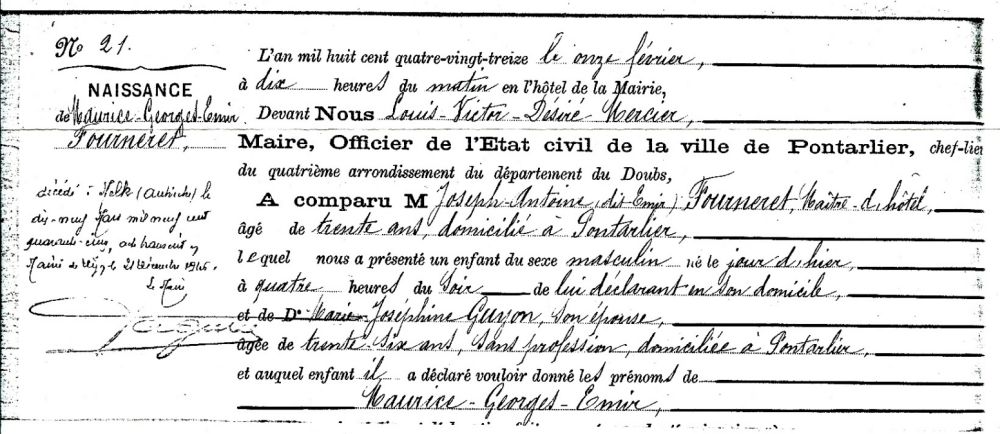 No 21.
NAISSANCE
de Maurice-Georges-Emir
Fourneret,
décédé à Melk (Autriche) le
dix-neuf Mars mil neuf cent
quarante-cinq,
Mairie de le 21 décembre 1946.
Le Maire
L'an mil huit cent quatre-vingt-treize le onze février,
à dix heures du matin en l'hôtel de la Mairie,
Devant Nous Louis-Victor-Désiré Mercier,
Maire, Officier de l'Etat civil de la ville de Pontarlier, chef-lieu
du quatrième arrondissement du département du Doubs,
A comparu M Joseph-Antoine (dit Emir) Fourneret, Maître-d'hôtel,
âgé de trente ans, domicilié à Pontarlier,
lequel nous a présenté un enfant du sexe masculin né le jour d'hier,
à quatre heures du soir de lui déclarant en son domicile,
et de De Marie-Joséphine Guyon, son épouse,
âgée de trente-six ans, sans profession, domiciliée à Pontarlier,
et auquel enfant il a déclaré vouloir donné les prénoms de
Maurice-Georges-Emir,